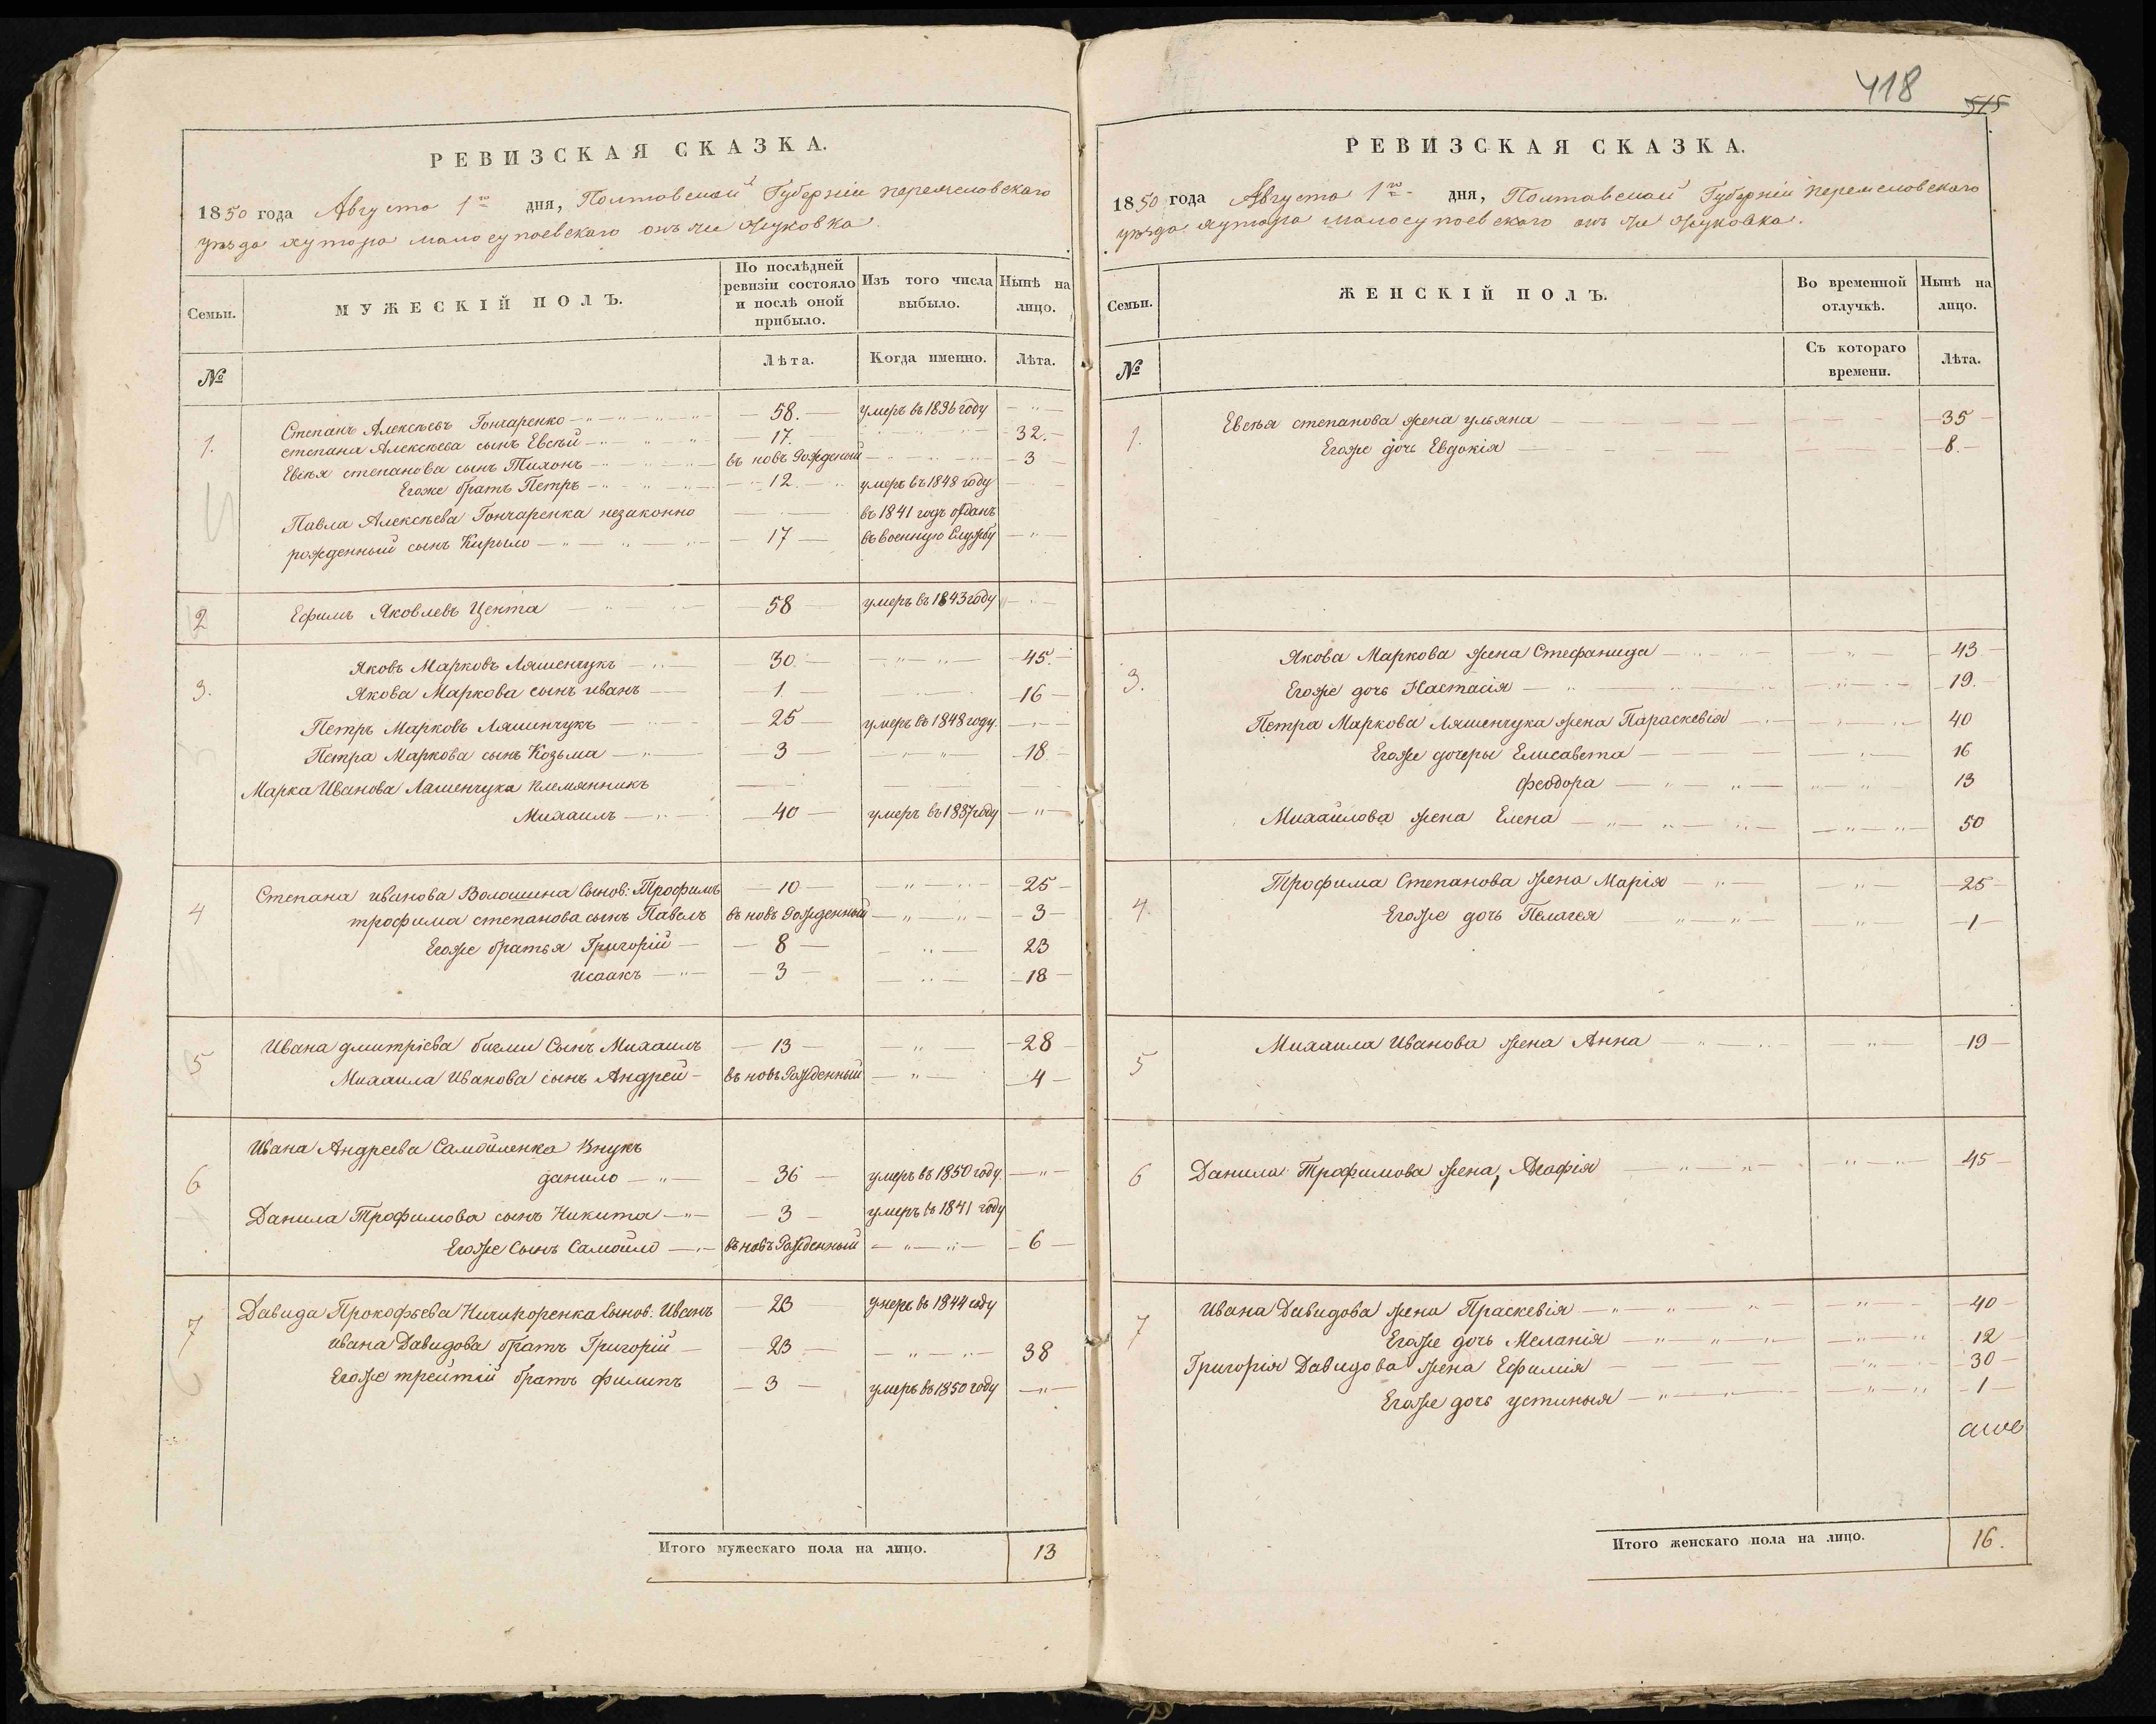 РЕВИЗСКАЯ СКАЗКА.
1850 года Августа 1го дня, Полтавской Губерніи переяславского
уѣзда хутора малосупоевского онъ же Жуковка.
Семьи.
МУЖЕСКІЙ ПОЛЪ.
По послѣдней ревизіи состояло и послѣ оной прибыло.
Изъ того числа выбыло.
Нынѣ на лицо.
№
Лѣта.
Когда именно.
Лѣта.
1. Степанъ Алексѣевъ Гончаренко 58. умеръ въ 1836 году
степана Алексѣева сынъ Евсѣй 17. 32.
Евсѣя степанова сынъ Тихонъ въ новъ Рожденый 3
Егоже братъ Петръ 12 умеръ въ 1848 году
Павла Алексѣева Гончаренка незаконно въ 1841 годъ отданъ
рожденный сынъ Кирыло 17 въ военную Службу
2 Ефимъ Яковлевъ Цента 58 умеръ въ 1843 году
3. Яковъ Марковъ Ляшенчукъ 30. 45.
Якова Маркова сынъ иванъ 1. 16
Петръ Марковъ Ляшинчукъ 25 умеръ въ 1848 году.
Петра Маркова сынъ Козьма 3 18
Марка Иванова Ляшенчука племянникъ
Михаилъ 40 умеръ въ 1837 году
4 Степана иванова Волошина Сынов: Трофимъ 10 25
трофима степанова сынъ Павелъ въ новъ Рожденный 3
Егоже братья Григорій 8 23
исаакъ 3 18
5 Ивана дмитріева бигми Сынъ Михаилъ 13 28
Михаила Иванова сынъ Андрей въ новъ Рожденный 4
6 Ивана Андреева Самойленка Внукъ
данило 36 умеръ въ 1850 году.
Данила Трофимова сынъ Никита 3 умеръ въ 1841 году
Егоже Сынъ Самойло въ новъ Рожденный 6
7 Давида Прокофьева Ничипоренка Сынов: Иванъ 23 умеръ въ 1844 году
ивана Давидова братъ Григорій 23 38
Егоже трейтій братъ филипъ 3 умеръ въ 1850 году
Итого мужескаго пола на лицо. 13
418
515
РЕВИЗСКАЯ СКАЗКА.
1850 года Августа 1го дня, Полтавской Губерніи переяславского
уѣзда хутора малосупоевского онъ же Жуковка.
Семьи.
ЖЕНСКІЙ ПОЛЪ.
Во временной отлучкѣ.
Нынѣ на лицо.
№
Съ котораго времени.
Лѣта.
1. Евсѣя степанова жена ульяна 35
Егоже дочь Евдокія 8.
3. Якова Маркова жена Стефанида 43
Егоже дочь Настасія 19.
Петра Маркова Ляшенчука жена Параскевія 40
Егоже дочеры Елисавета 16
Феодора 13
Михайлова жена Елена 50
4. Трофима Степанова жена Марія 25
Егоже дочь Пелагея 1
5 Михаила Иванова жена Анна 19
6 Данила Трофимова жена, Агафія 45
7 Ивана Давидова жена Праскевія 40
Егоже дочь Меланія 12
Григорія Давидова жена Ефимія 30
Егоже дочь устиныя 1
Итого женскаго пола на лицо. 16.